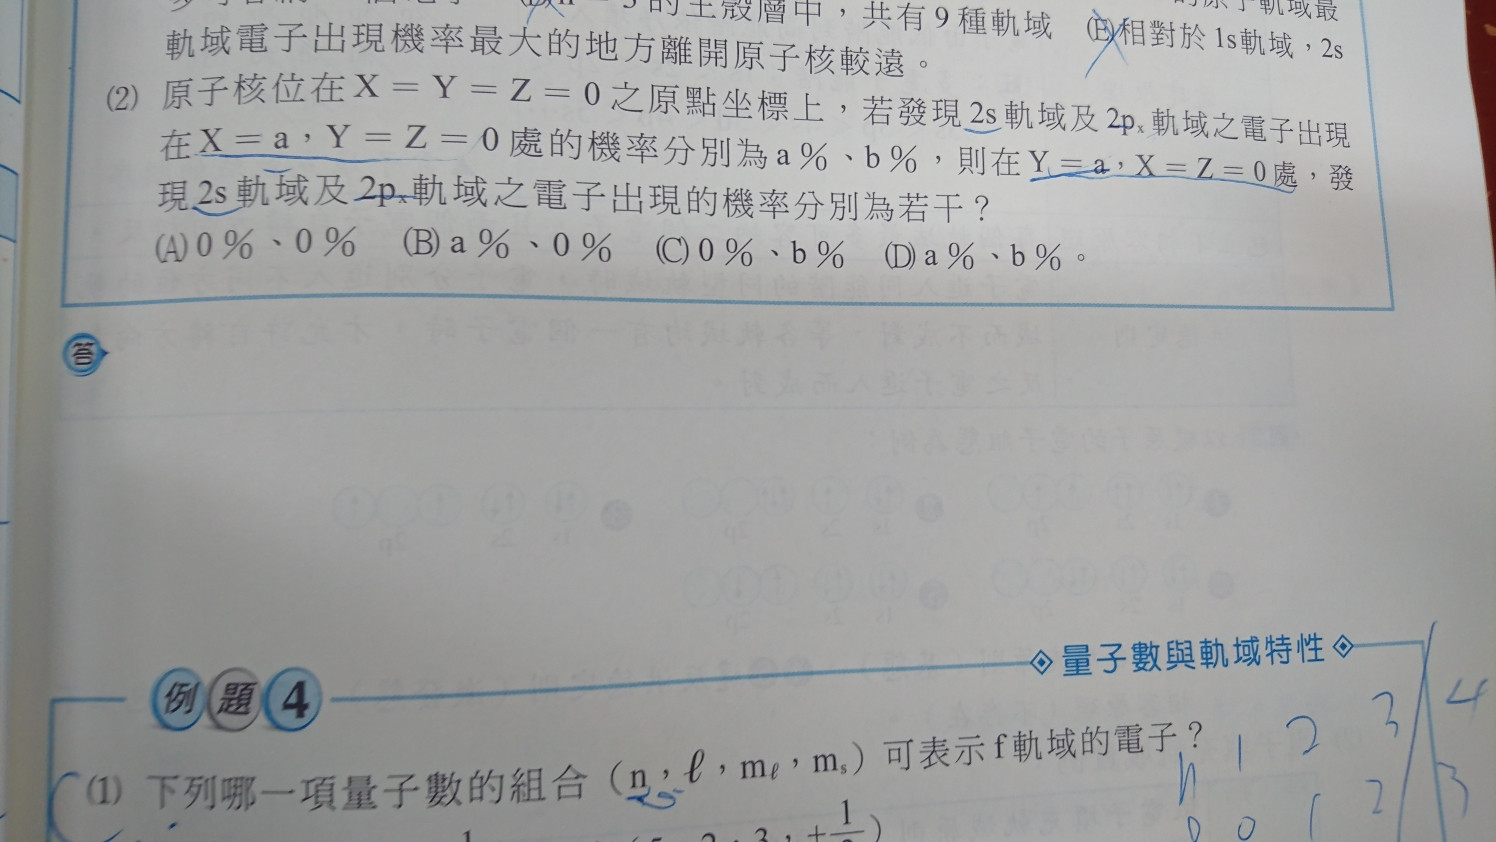 的主殼層中，共有9種軌域 (E)相對於1s軌域，2s
軌域電子出現機率最大的地方離開原子核較遠。
(2) 原子核位在X＝Y＝Z＝0之原點坐標上，若發現2s軌域及2pₓ軌域之電子出現
在X＝a，Y＝Z＝0處的機率分別為a％、b％，則在Y＝a，X＝Z＝0處，發
現2s軌域及2pₓ軌域之電子出現的機率分別為若干？
(A) 0％、0％ (B) a％、0％ (C) 0％、b％ (D) a％、b％。
答
量子數與軌域特性
例題4
(1) 下列哪一項量子數的組合（n，ℓ，mℓ，mₛ）可表示f軌域的電子？
n 1 2 3 4
0 1 2 3